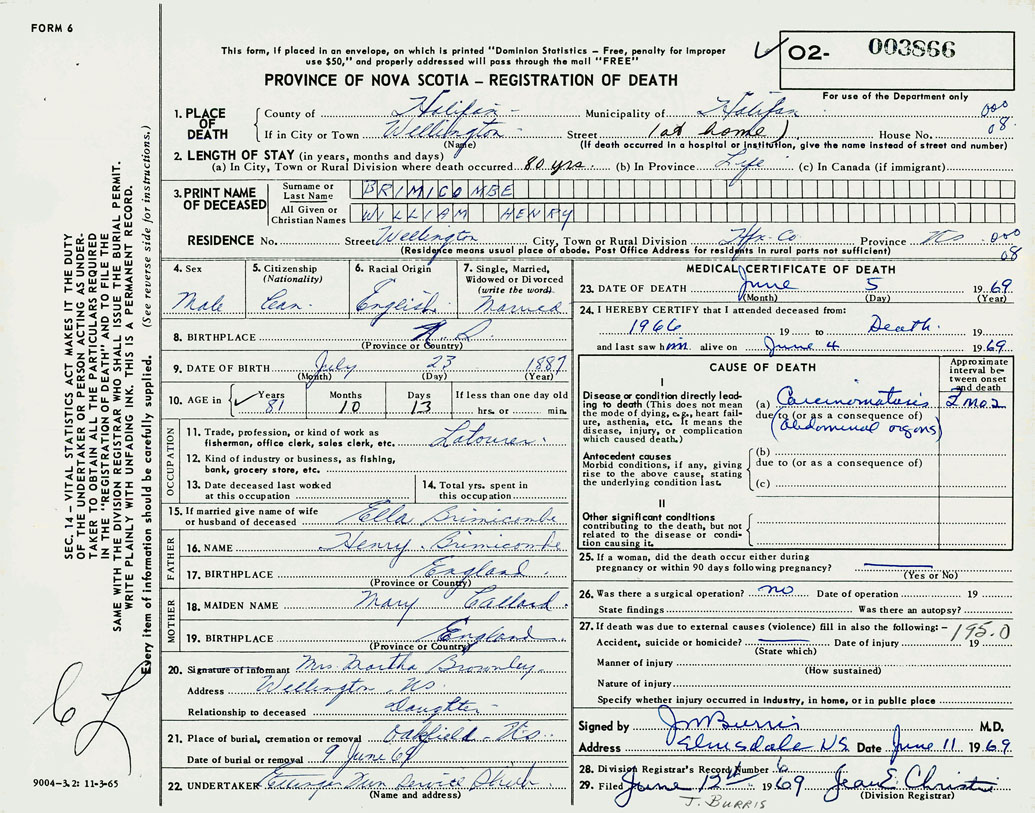 FORM 6
This form, if placed in an envelope, on which is printed "Dominion Statistics – Free, penalty for improper
use $50," and properly addressed will pass through the mail "FREE"
02- 003866
PROVINCE OF NOVA SCOTIA – REGISTRATION OF DEATH
For use of the Department only
1. PLACE OF DEATH
County of Halifax Municipality of Halifax 000
If in City or Town Wellington Street (at home) House No. 08
(Name) (If death occurred in a hospital or institution, give the name instead of street and number)
2. LENGTH OF STAY (in years, months and days)
(a) In City, Town or Rural Division where death occurred 80 yrs. (b) In Province Life (c) In Canada (if immigrant)
3. PRINT NAME OF DECEASED
Surname or Last Name BRIMICOMBE
All Given or Christian Names WILLIAM HENRY
RESIDENCE No. Street Wellington City, Town or Rural Division Hfx Co Province NS 000
(Residence means usual place of abode. Post Office Address for residents in rural parts not sufficient) 08
4. Sex Male
5. Citizenship (Nationality) Can
6. Racial Origin English
7. Single, Married, Widowed or Divorced (write the word) Married
8. BIRTHPLACE
(Province or Country)
9. DATE OF BIRTH July 23 1887
(Month) (Day) (Year)
10. AGE in Years 81 Months 10 Days 13 If less than one day old
hrs. or min.
OCCUPATION
11. Trade, profession, or kind of work as
fisherman, office clerk, sales clerk, etc. Labourer
12. Kind of industry or business, as fishing,
bank, grocery store, etc.
13. Date deceased last worked
at this occupation
14. Total yrs. spent in
this occupation
15. If married give name of wife
or husband of deceased Ella Brimicombe
FATHER
16. NAME Henry Brimicombe
17. BIRTHPLACE England
(Province or Country)
MOTHER
18. MAIDEN NAME Mary Callard
19. BIRTHPLACE England
(Province or Country)
20. Signature of informant Mrs. Martha Brownley
Address Wellington NS
Relationship to deceased Daughter
21. Place of burial, cremation or removal Oakfield NS
Date of burial or removal 9 June 69
22. UNDERTAKER Ettinger
(Name and address)
MEDICAL CERTIFICATE OF DEATH
23. DATE OF DEATH June 5 1969
(Month) (Day) (Year)
24. I HEREBY CERTIFY that I attended deceased from:
1966 19 to Death 19
and last saw him alive on June 4 1969
CAUSE OF DEATH
Approximate interval between onset and death
I
Disease or condition directly leading to death (This does not mean the mode of dying, e.g., heart failure, asthenia, etc. It means the disease, injury, or complication which caused death.)
(a) Carcinomatosis 2 mos
due to (or as a consequence of)
(abdominal organs)
Antecedent causes
Morbid conditions, if any, giving rise to the above cause, stating the underlying condition last.
(b)
due to (or as a consequence of)
(c)
II
Other significant conditions
contributing to the death, but not related to the disease or condition causing it.
25. If a woman, did the death occur either during
pregnancy or within 90 days following pregnancy?
(Yes or No)
26. Was there a surgical operation? no Date of operation 19
State findings Was there an autopsy?
27. If death was due to external causes (violence) fill in also the following: – 195.0
Accident, suicide or homicide? Date of injury 19
(State which)
Manner of injury
(How sustained)
Nature of injury
Specify whether injury occurred in industry, in home, or in public place
Signed by J M Burris M.D.
Address Elmsdale N.S. Date June 11 1969
28. Division Registrar's Record Number 6
29. Filed June 12th 1969 Jean E. Christie
(Division Registrar)
J. BURRIS
SEC. 14 – VITAL STATISTICS ACT MAKES IT THE DUTY
OF THE UNDERTAKER OR PERSON ACTING AS UNDER-
TAKER TO OBTAIN ALL THE PARTICULARS REQUIRED
IN THE "REGISTRATION OF DEATH" AND TO FILE THE
SAME WITH THE DIVISION REGISTRAR WHO SHALL ISSUE THE BURIAL PERMIT.
WRITE PLAINLY WITH UNFADING INK. THIS IS A PERMANENT RECORD.
Every item of information should be carefully supplied. (See reverse side for instructions.)
9004-3.2: 11-3-65